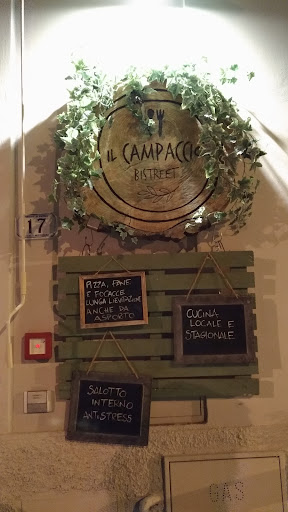 IL CAMPACCIO
BISTREET
17
PIZZA, PANE
E FOCACCE
LUNGA LIEVITAZIONE
ANCHE DA
ASPORTO
CUCINA
LOCALE E
STAGIONALE
SALOTTO
INTERNO
ANTISTRESS
GAS